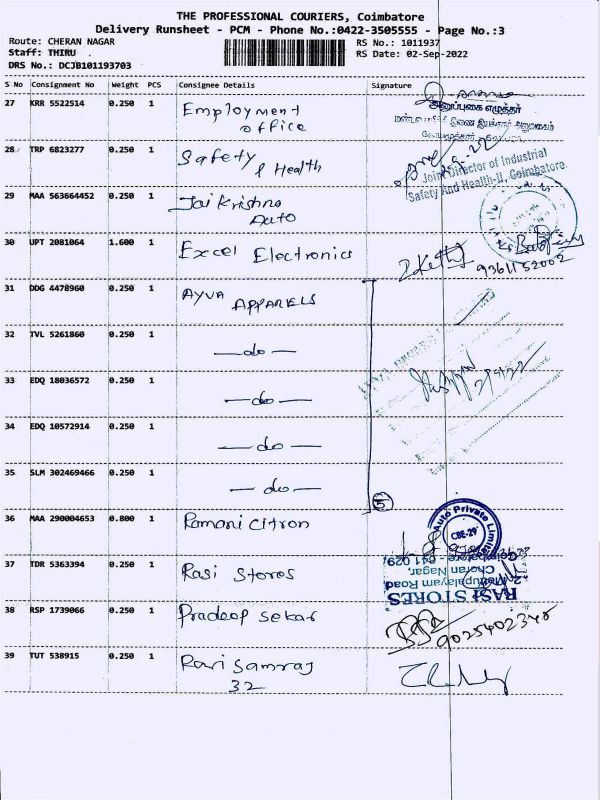 THE PROFESSIONAL COURIERS, Coimbatore
Delivery Runsheet - PCM - Phone No.:0422-3505555 - Page No.:3
Route: CHERAN NAGAR
RS No.: 1011937
Staff: THIRU
RS Date: 02-Sep-2022
DRS No.: DCJB101193703
S No Consignment No Weight PCS Consignee Details Signature
27 KRR 5522514 0.250 1 Employment
office
அனுப்புகை எழுத்தர்
28 TRP 6823277 0.250 1 Safety
& Health
Joint Director of Industrial
Safety And Health-II, Coimbatore.
29 MAA 563664452 0.250 1 Jai Krishna
Auto
30 UPT 2081064 1.600 1 Excel Electronics
9361152002
31 DDG 4478960 0.250 1 AYVA APPARELS
32 TVL 5261860 0.250 1 —do—
33 EDQ 18036572 0.250 1 —do—
34 EDQ 10572914 0.250 1 —do—
35 SLM 302469466 0.250 1 —do—
5
36 MAA 290004653 0.800 1 Ramani Citron
Auto Private Limited
CBE-29
37 TDR 5363394 0.250 1 Rasi Stores
RASI STORES
Mettupalayam Road
Cheran Nagar,
Coimbatore - 641 029
38 RSP 1739066 0.250 1 Pradeep Sekar
9025402345
39 TUT 538915 0.250 1 Ravi Samraj
32